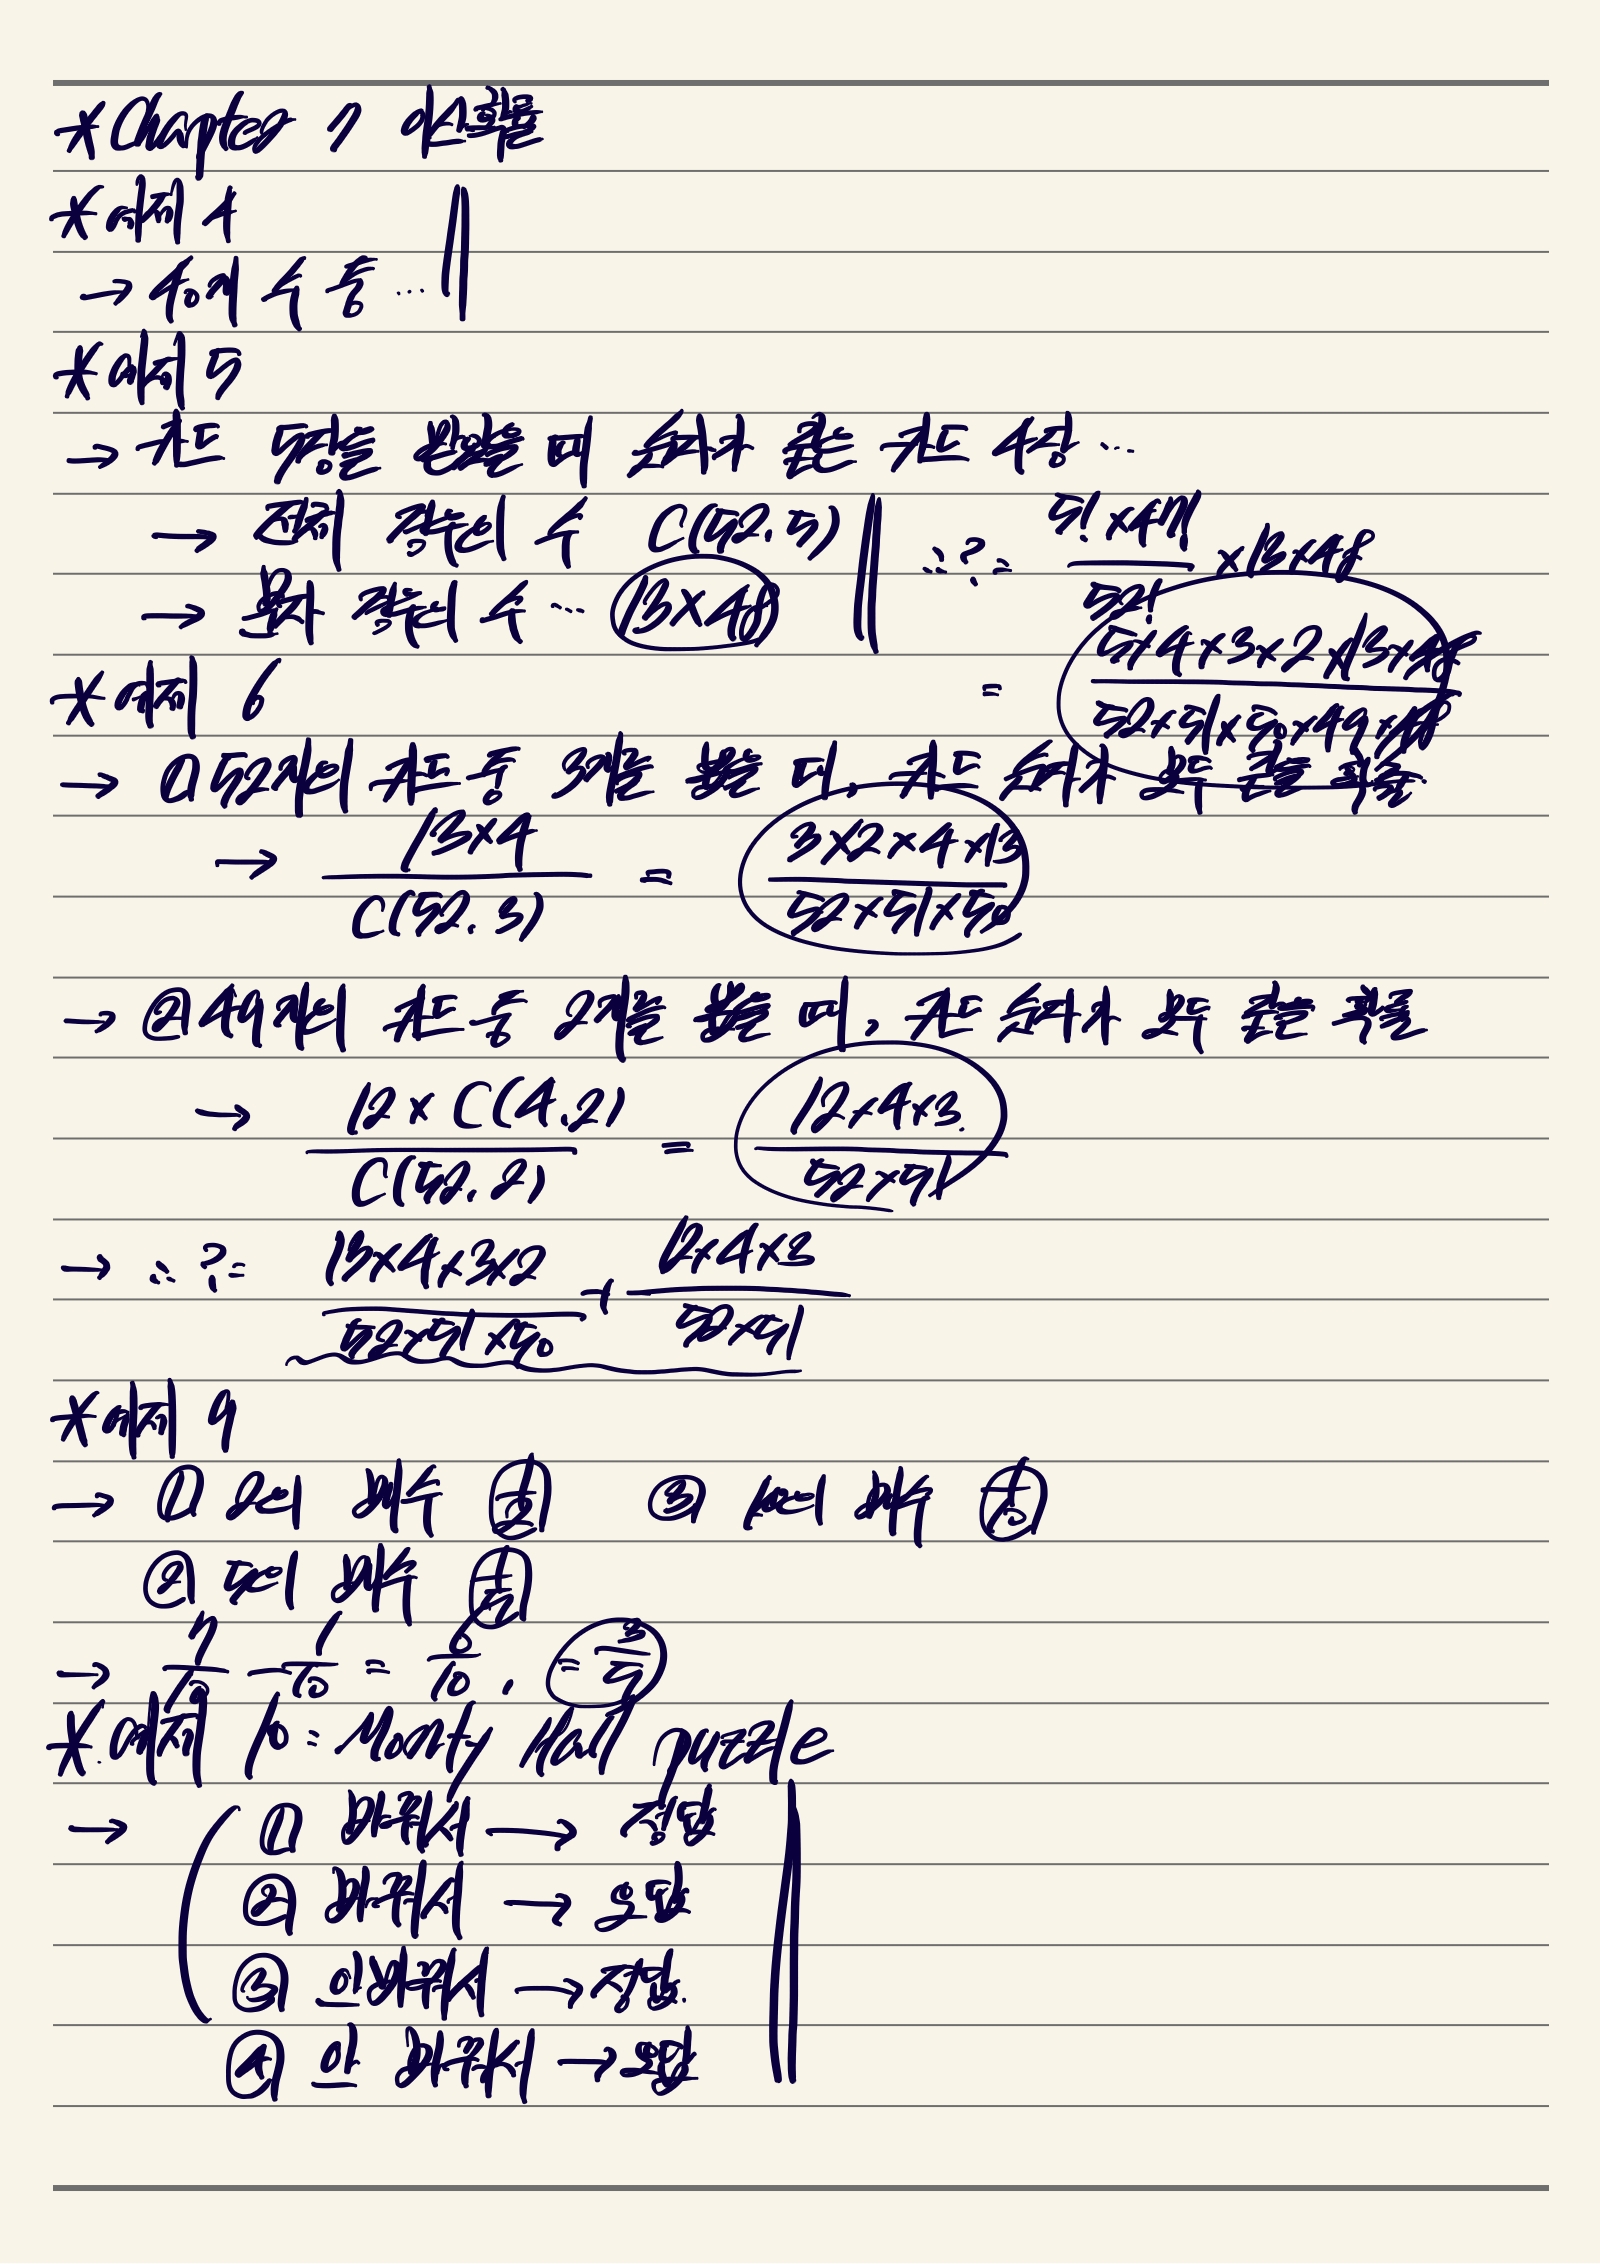 *Chapter 7 이산확률
*예제 4
→ 4개의 수 중 ...
*예제 5
→ 카드 5장을 뽑았을 때 숫자가 같은 카드 4장 ...
→ 전체 경우의 수 C(52.5) ∴ ?= 5! x 47! / 52! x 13 x 48
→ 문자 경우의 수 ... 13 X 48
= 5x4x3x2x13x48 / 52x51x50x49x48
*예제 6
→ ① 52개의 카드 중 3개를 뽑을 때, 카드 숫자가 모두 같을 확률
→ 13x4 / C(52.3) = 3x2x4x13 / 52x51x50
→ ② 49개의 카드 중 2개를 뽑을 때, 카드 숫자가 모두 같을 확률
→ 12 x C(4.2) / C(52.2) = 12x4x3 / 52x51
→ ∴ ?= 13x4x3x2 / 52x51x50 + 12x4x3 / 52x51
*예제 9
→ ① 2의 배수 1/2 ③ 10의 배수 1/10
② 5의 배수 1/5
→ 7/10 - 1/10 = 6/10 . = 3/5
*예제 10 = Monty Hall puzzle
→ ① 바꿔서 → 정답
② 바꿔서 → 오답
③ 안바꿔서 → 정답.
④ 안 바꿔서 → 오답